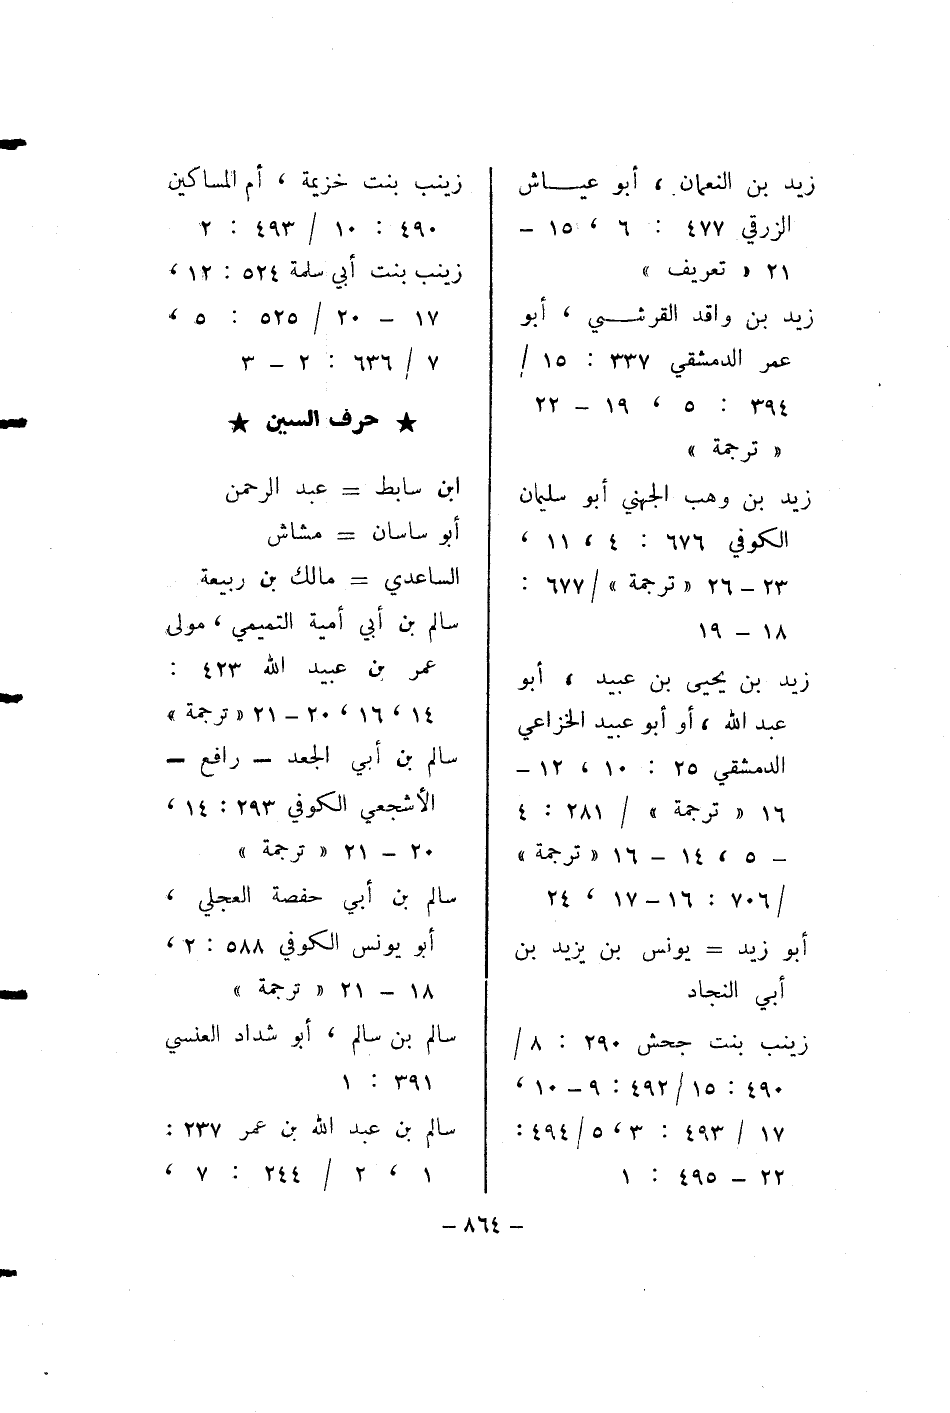 زيد بن النعمان ، أبو عيـــاش
الزرقي ٤٧٧ : ٦ ، ١٥ –
٢١ « تعريف »
زيد بن واقد القرشـــي ، أبو
عمر الدمشقي ٣٣٧ : ١٥ /
٣٩٤ : ٥ ، ١٩ – ٢٢
« ترجمة »
زيد بن وهب الجهني أبو سليمان
الكوفي ٦٧٦ : ٤ ، ١١ ،
٢٣ – ٢٦ « ترجمة » / ٦٧٧ :
١٨ – ١٩
زيد بن يحيى بن عبيد ، أبو
عبد الله ، أو أبو عبيد الخزاعي
الدمشقي ٢٥ : ١٠ ، ١٢ –
١٦ « ترجمة » / ٢٨١ : ٤
– ٥ ، ١٤ – ١٦ « ترجمة »
/ ٧٠٦ : ١٦ – ١٧ ، ٢٤
أبو زيد = يونس بن يزيد بن
أبي النجاد
زينب بنت جحش ٢٩٠ : ٨ /
٤٩٠ : ١٥ / ٤٩٢ : ٩ – ١٠ ،
١٧ / ٤٩٣ : ٣ ، ٥ / ٤٩٤ :
٢٢ – ٤٩٥ : ١
زينب بنت خزيمة ، أم المساكين
٤٩٠ : ١٠ / ٤٩٣ : ٢
زينب بنت أبي سلمة ٥٢٤ : ١٢ ،
١٧ – ٢٠ / ٥٢٥ : ٥ ،
٧ / ٦٣٦ : ٢ – ٣
★ حرف السين ★
ابن سابط = عبد الرحمن
أبو ساسان = مشاش
الساعدي = مالك بن ربيعة
سالم بن أبي أمية التميمي ، مولى
عمر بن عبيد الله ٤٢٣ :
١٤ ، ١٦ ، ٢٠ – ٢١ « ترجمة »
سالم بن أبي الجعد – رافع –
الأشجعي الكوفي ٢٩٣ : ١٤ ،
٢٠ – ٢١ « ترجمة »
سالم بن أبي حفصة العجلي ،
أبو يونس الكوفي ٥٨٨ : ٢ ،
١٨ – ٢١ « ترجمة »
سالم بن سالم ، أبو شداد العنسي
٣٩١ : ١
سالم بن عبد الله بن عمر ٢٣٧ :
١ ، ٢ / ٢٤٤ : ٧ ،
– ٨٦٤ –